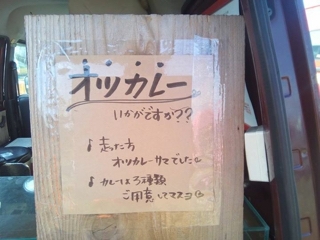 オツカレー
いかがですか??
♪走った方
オツカレーサマでした
♪カレーは3種類
ご用意してマスヨ